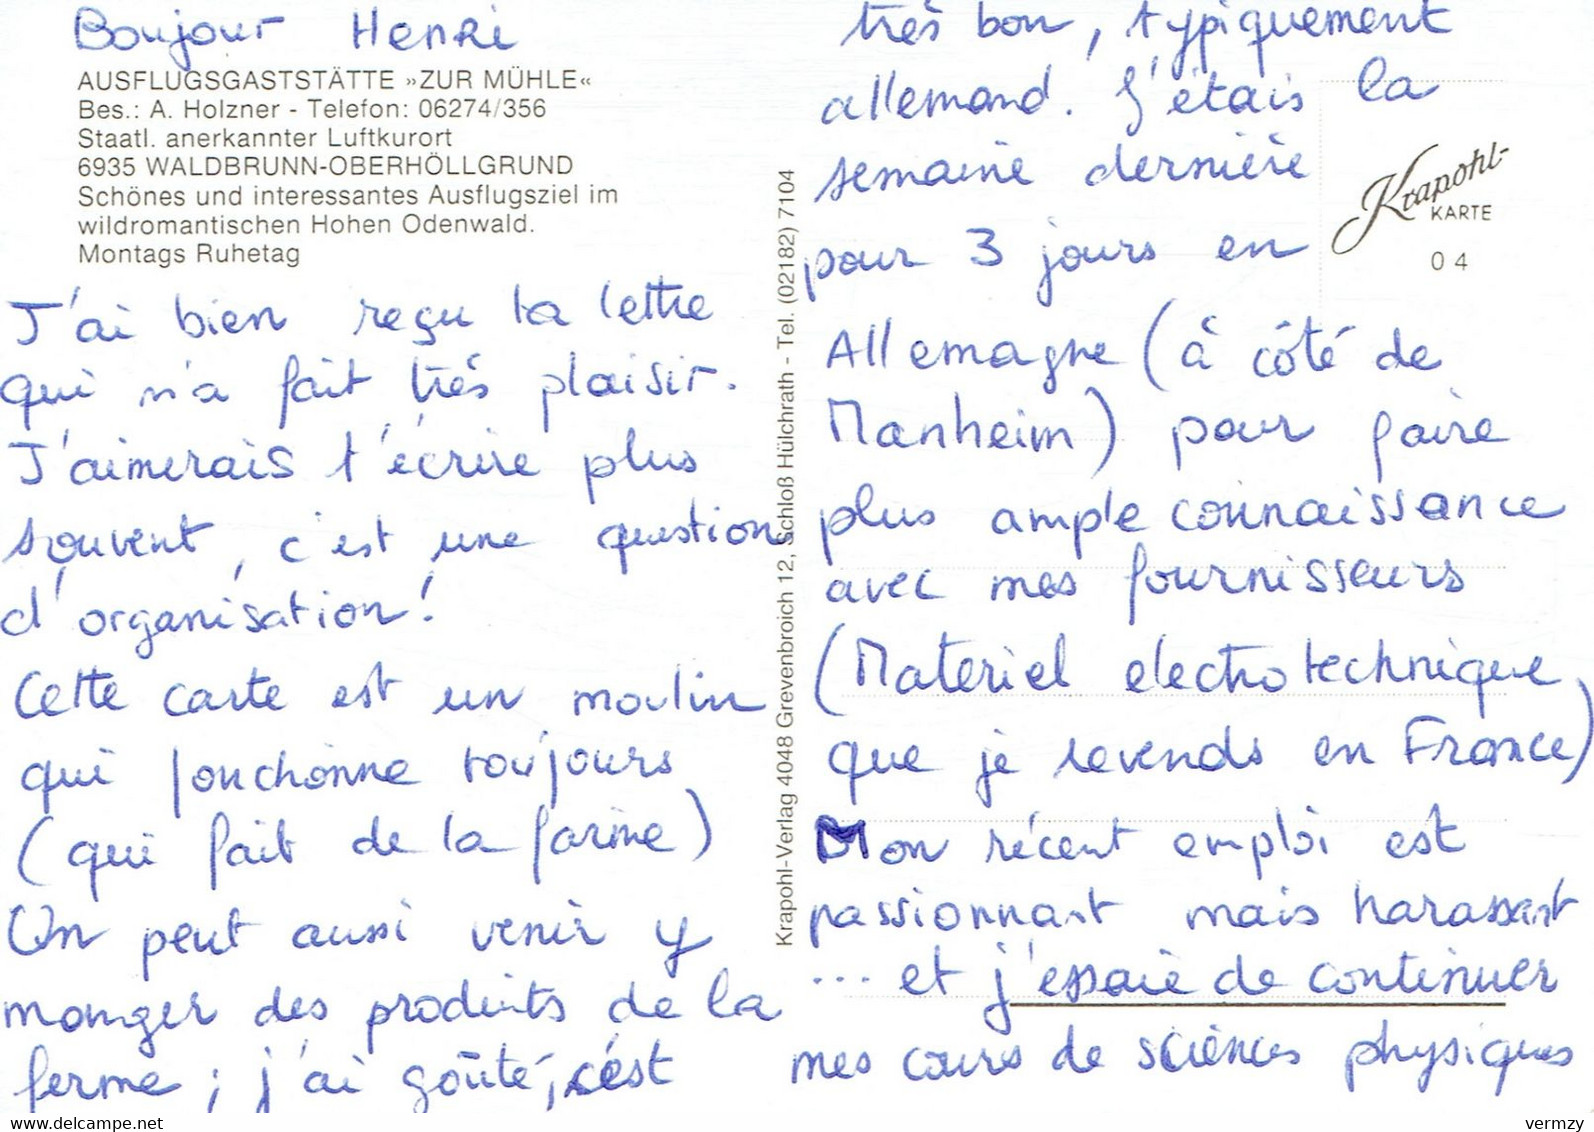 Bonjour Henri
AUSFLUGSGASTSTÄTTE »ZUR MÜHLE«
Bes.: A. Holzner - Telefon: 06274/356
Staatl. anerkannter Luftkurort
6935 WALDBRUNN-OBERHÖLLGRUND
Schönes und interessantes Ausflugsziel im
wildromantischen Hohen Odenwald.
Montags Ruhetag
J'ai bien reçu ta lettre
qui m'a fait très plaisir.
J'aimerais t'écrire plus
souvent, c'est une question
d'organisation!
Cette carte est un moulin
qui fonctionne toujours
(qui fait de la farine)
On peut aussi venir y
manger des produits de la
ferme; j'ai goûté, c'est
Krapohl-Verlag 4048 Grevenbroich 12, Schloß Hülchrath - Tel. (02182) 7104
très bon, typiquement
allemand. J'étais la
semaine dernière
pour 3 jours en
Allemagne (à côté de
Manheim) pour faire
plus ample connaissance
avec mes fournisseurs
(Matériel electrotechnique
que je revends en France)
Mon récent emploi est
passionnant mais harassant
... et j'essaie de continuer
mes cours de sciences physiques
Krapohl-
KARTE
04
www.delcampe.net
vermzy